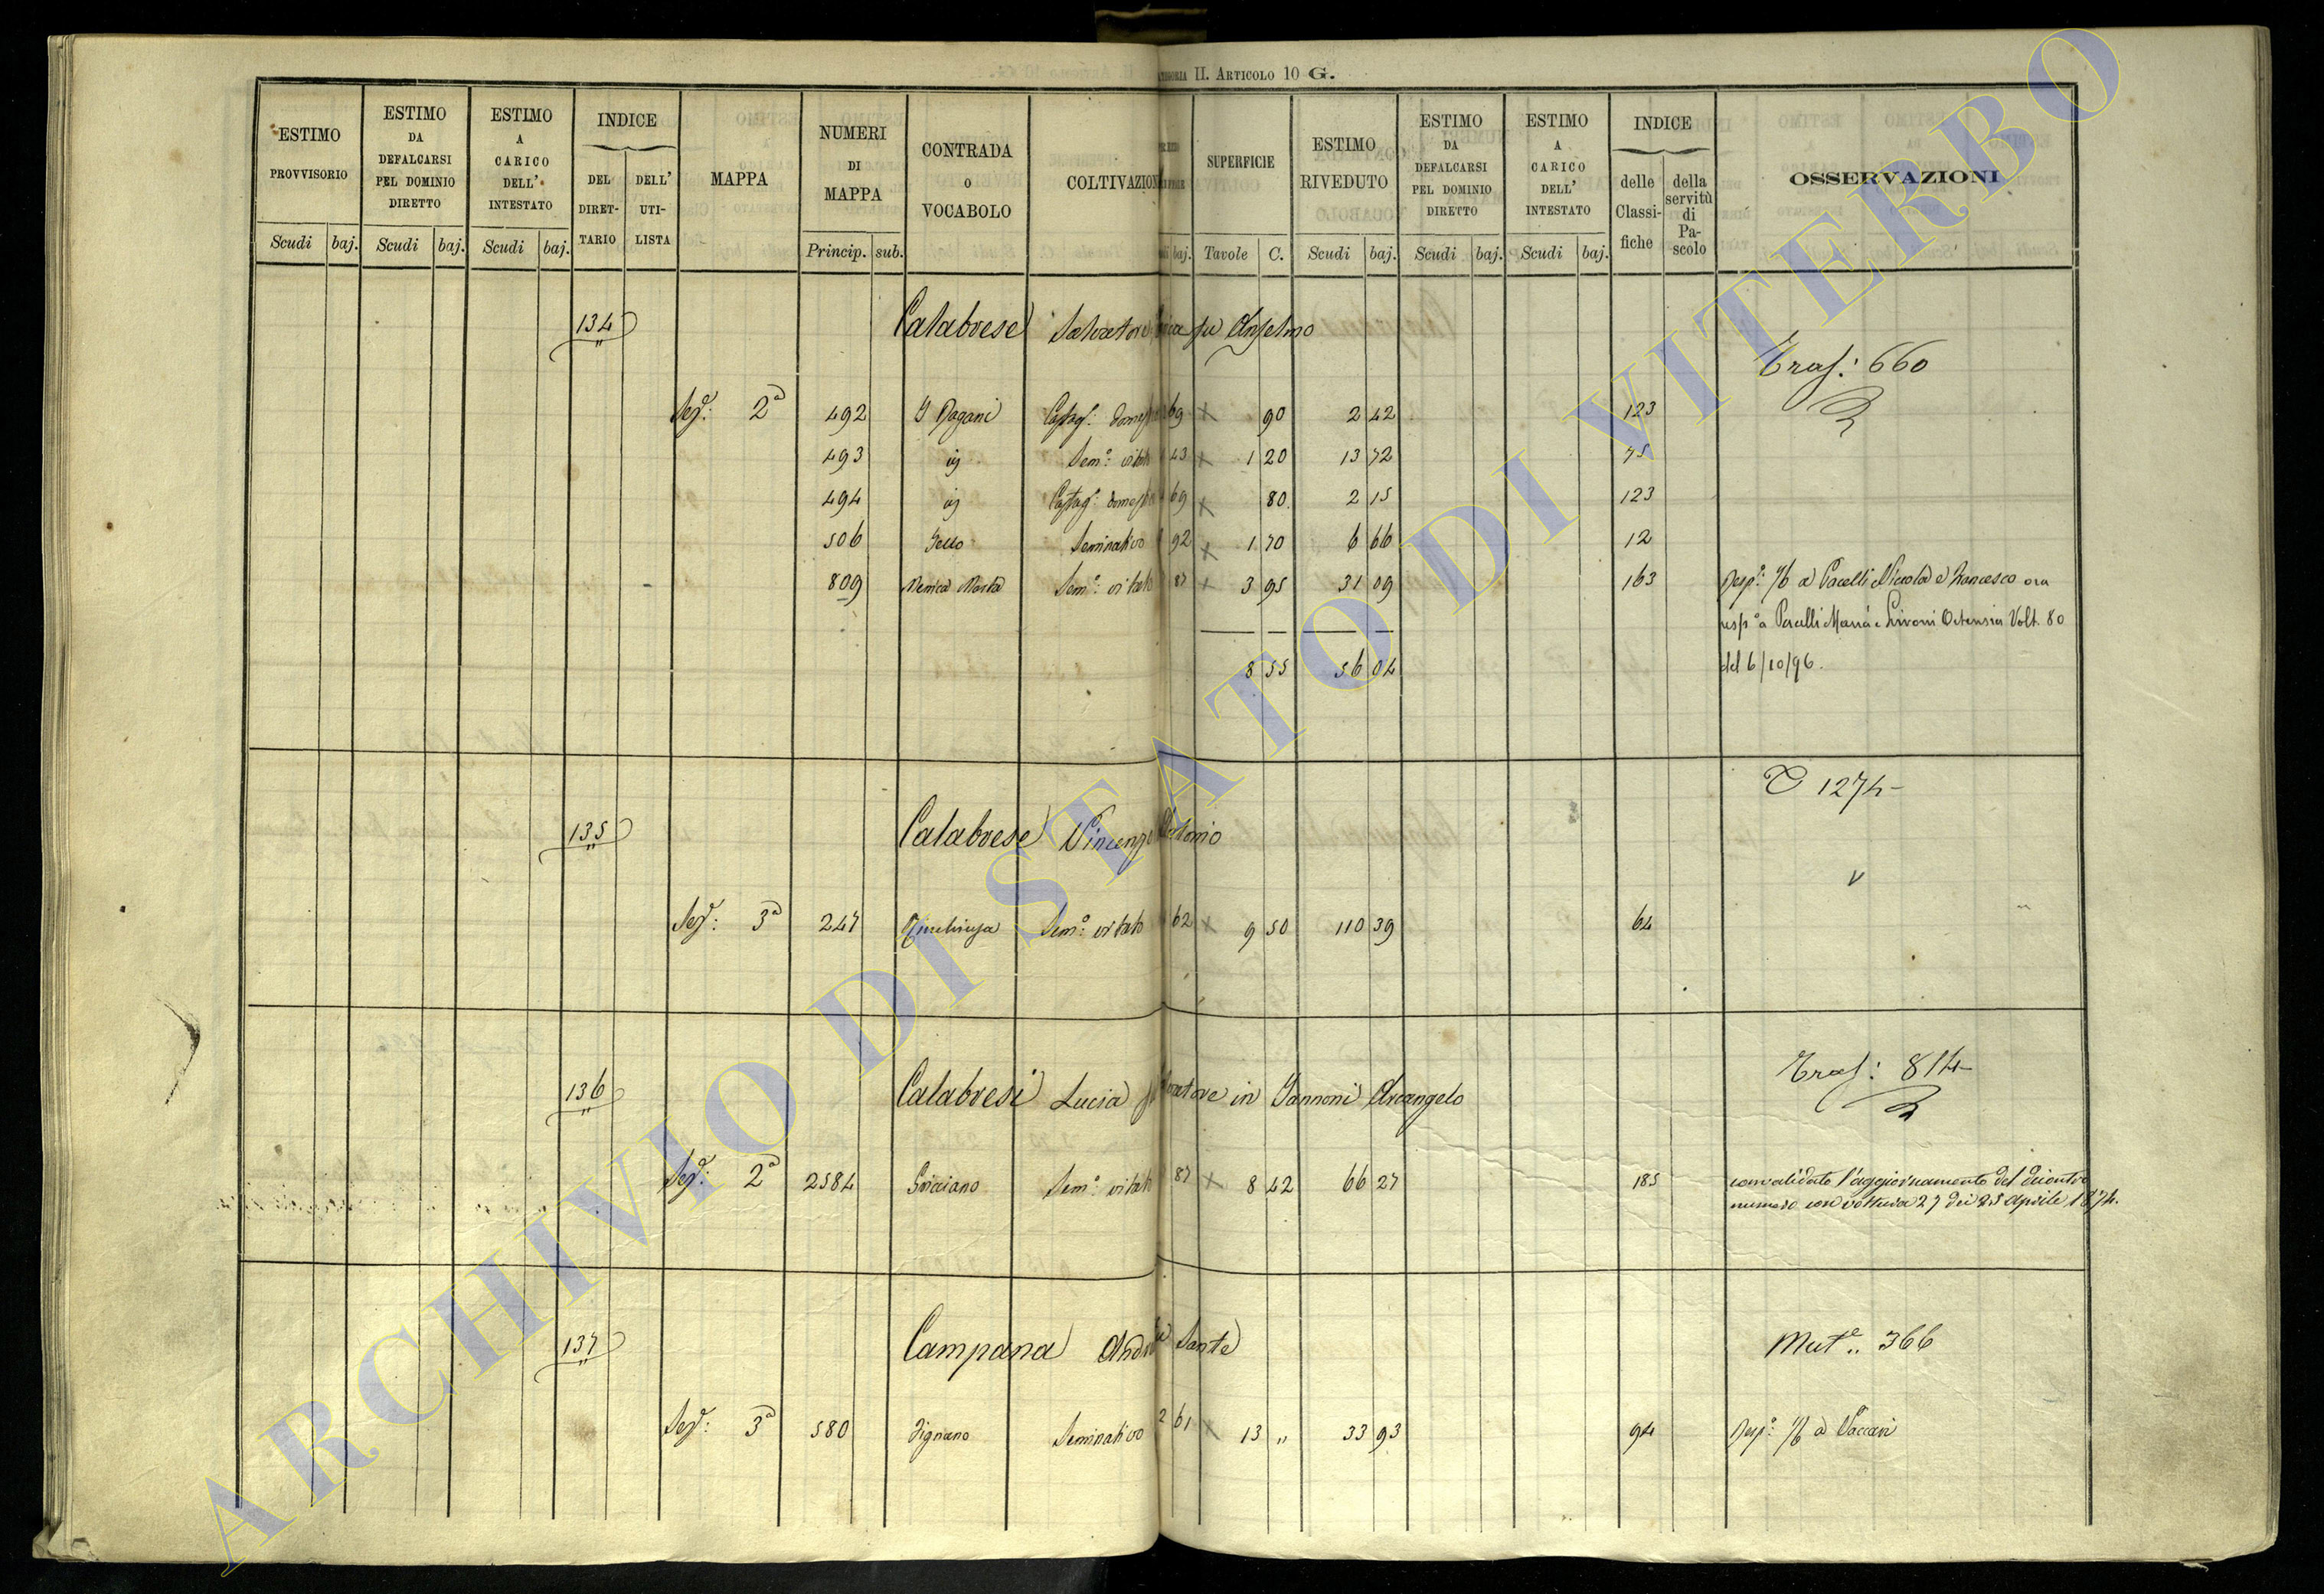 CATEGORIA II. ARTICOLO 10 G.
ESTIMO PROVVISORIO
Scudi baj.
ESTIMO DA DEFALCARSI PEL DOMINIO DIRETTO
Scudi baj.
ESTIMO A CARICO DELL' INTESTATO
Scudi baj.
INDICE
DEL DIRETTARIO
DELL' UTILISTA
MAPPA
NUMERI DI MAPPA
Princip. sub.
CONTRADA O VOCABOLO
COLTIVAZION
baj.
SUPERFICIE
Tavole C.
ESTIMO RIVEDUTO
Scudi baj.
ESTIMO DA DEFALCARSI PEL DOMINIO DIRETTO
Scudi baj.
ESTIMO A CARICO DELL' INTESTATO
Scudi baj.
INDICE
delle Classifiche
della servitù di Pascolo
OSSERVAZIONI
134 Calabrese Salvatore fu Anselmo
Tras: 660
Sez: 2a 492 I Pagani Castag: domest 69 x 90 2 42 123
493 id Sem: vitato 43 x 1 20 13 72 75
494 id Castag: domest 69 x 80 2 15 123
506 Seminativo 92 x 1 70 6 66 12
809 Menica Marta Sem: vitato 87 x 3 95 31 09 163 Resp: 1/6 a Pacelli Niccola e Francesco ora
resp a Pacelli Maria e Livoni Ortensia Volt. 80
8 55 56 04 del 6/10/96.
T 1274
135 Calabrese Vincenzo Antonio
Sez: 3a 247 Sem: vitato 62 x 9 50 110 39 64
Tras: 814
136 Calabresi Lucia fu Salvatore in Iannoni Arcangelo
Sez: 2a 2584 Sem: vitato 87 x 8 42 66 27 185 convalidato l'aggiornamento del dicontro
numero con voltura 27 dei 23 Aprile 1874.
137 Campana Andrea Sante
Mut. 366
Sez: 3a 580 Vignano Seminativo 2 61 x 13 " 33 93 94 Resp: 1/6 a Vaccari
ARCHIVIO DI STATO DI VITERBO